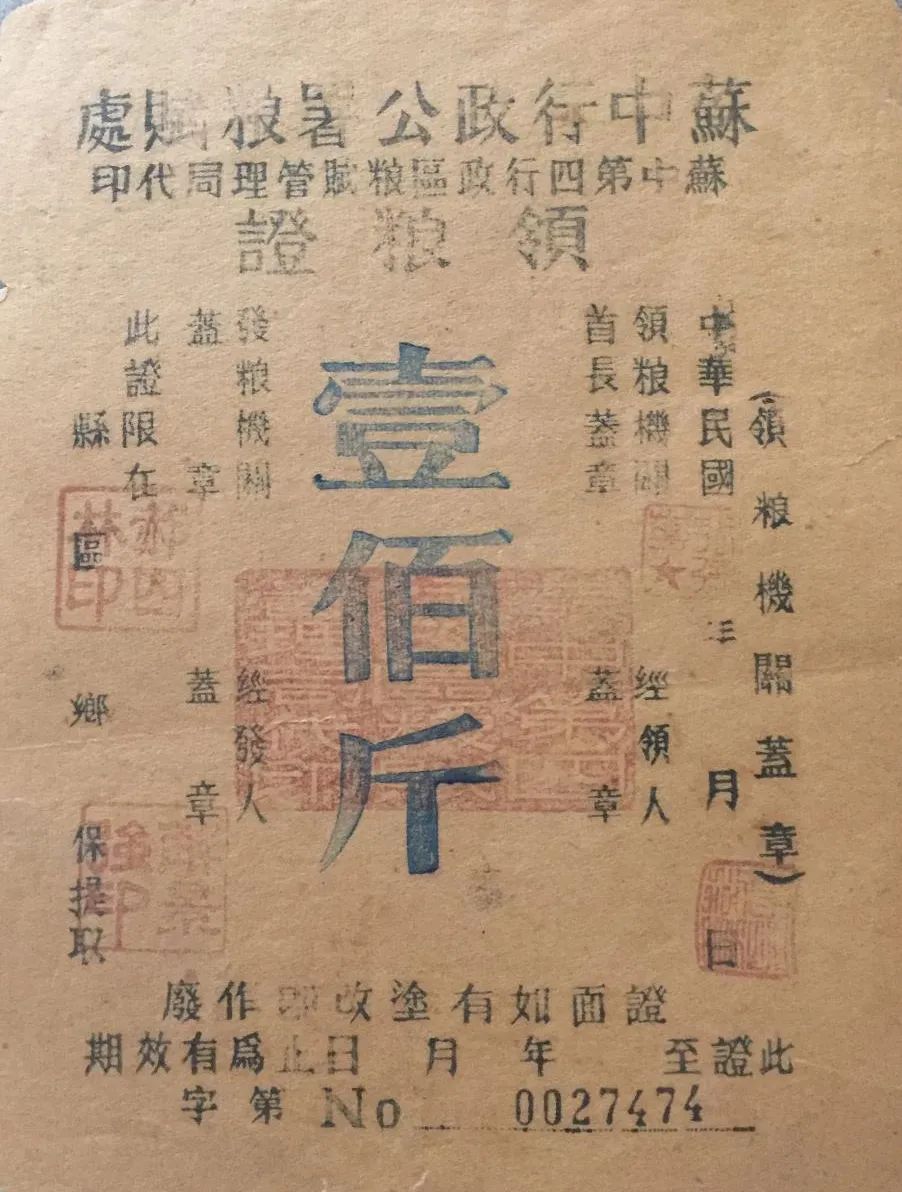 蘇中行政公署粮賦處
蘇中第四行政區粮賦管理局代印
領粮證
(領粮機關蓋章)
中華民國三 月 日
領粮機關 經領人
首長蓋章 蓋章
壹佰斤
發粮機關 經發人
蓋章 蓋章
此證限在
縣 區 鄉 保提取
證面如有塗改即作廢
此證至 年 月 日止爲有效期
字第 No 0027474